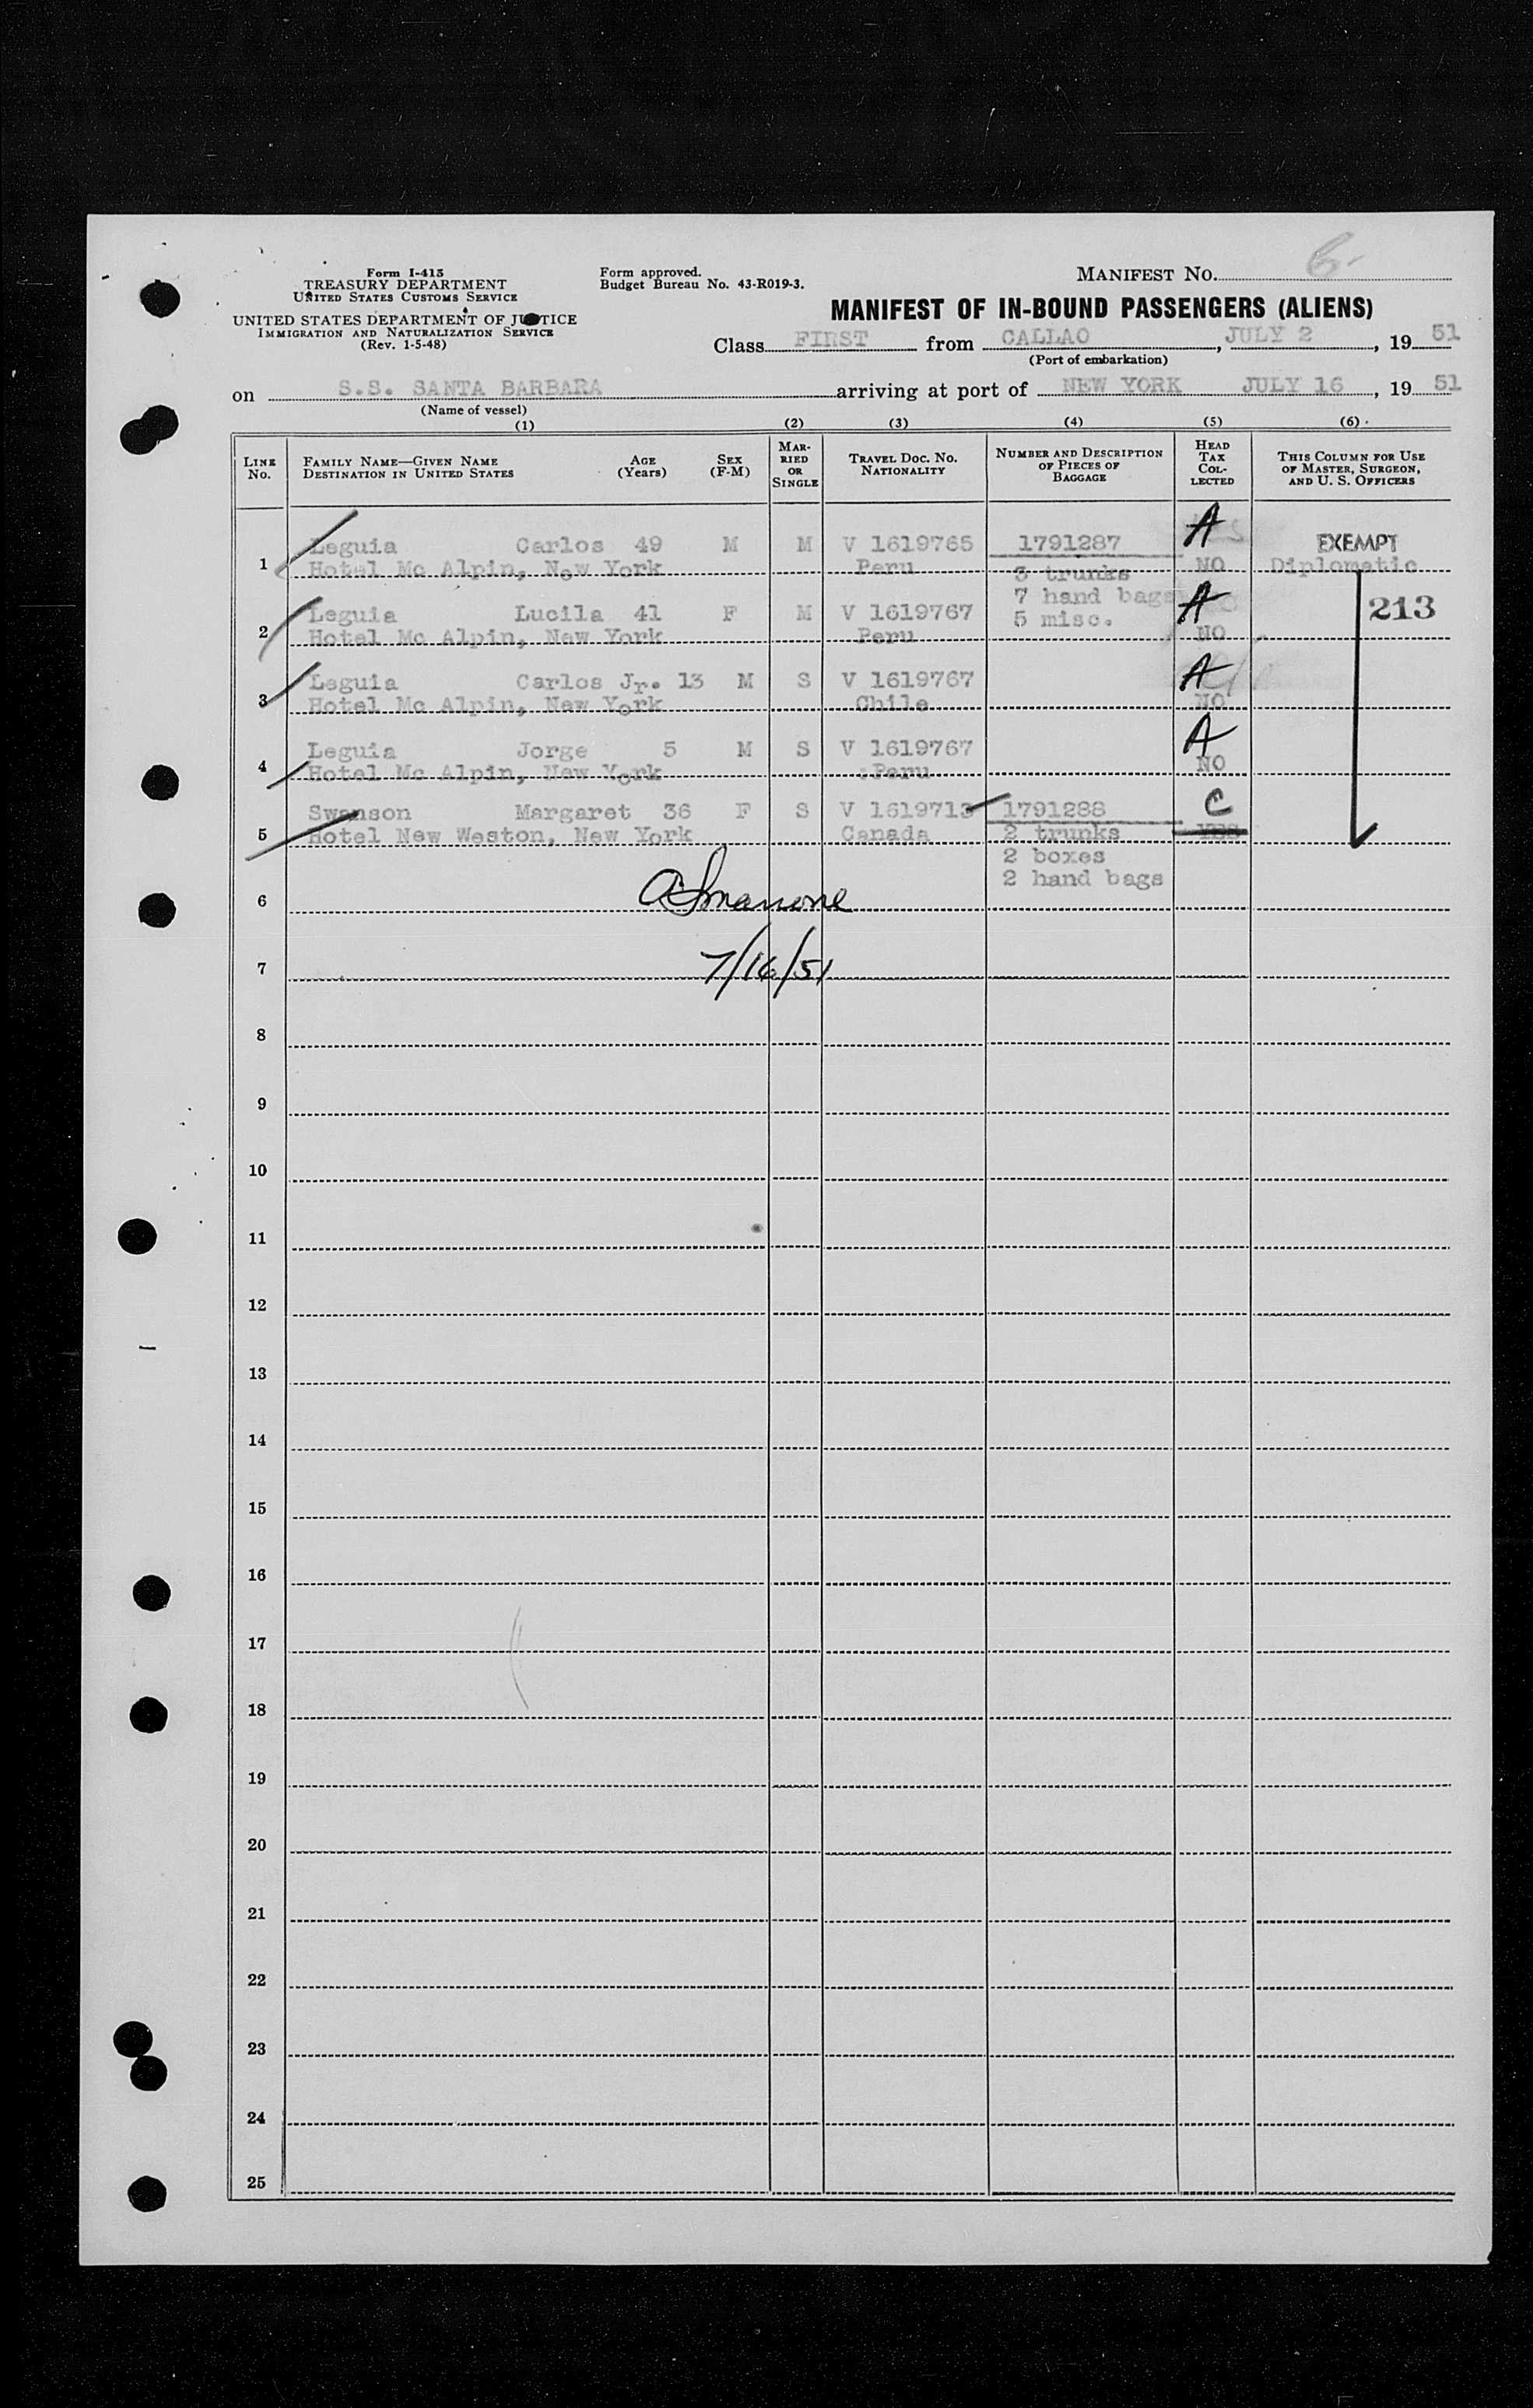 Form I-415
TREASURY DEPARTMENT
UNITED STATES CUSTOMS SERVICE
UNITED STATES DEPARTMENT OF JUSTICE
IMMIGRATION AND NATURALIZATION SERVICE
(Rev. 1-5-48)
Form approved.
Budget Bureau No. 43-R019-3.
MANIFEST No. 6.
MANIFEST OF IN-BOUND PASSENGERS (ALIENS)
Class FIRST from CALLAO, JULY 2, 19 51
(Port of embarkation)
on S.S. SANTA BARBARA arriving at port of NEW YORK JULY 16, 19 51
(Name of vessel)
(1) (2) (3) (4) (5) (6)
LINE No. FAMILY NAME—GIVEN NAME DESTINATION IN UNITED STATES AGE (Years) SEX (F-M) MARRIED OR SINGLE TRAVEL DOC. NO. NATIONALITY NUMBER AND DESCRIPTION OF PIECES OF BAGGAGE HEAD TAX COLLECTED THIS COLUMN FOR USE OF MASTER, SURGEON, AND U. S. OFFICERS
Leguia Carlos 49 M M V 1619765 1791287 A EXEMPT
1 Hotel Mc Alpin, New York Peru 3 trunks NO Diplomatic
7 hand bags
Leguia Lucila 41 F M V 1619767 5 misc. A 213
2 Hotel Mc Alpin, New York Peru NO
Leguia Carlos Jr. 13 M S V 1619767 A
3 Hotel Mc Alpin, New York Chile NO
Leguia Jorge 5 M S V 1619767 A
4 Hotel Mc Alpin, New York Peru NO
Swanson Margaret 36 F S V 1619713 1791288 C
5 Hotel New Weston, New York Canada 2 trunks YES
2 boxes
6 2 hand bags
7 7/16/51
8
9
10
11
12
13
14
15
16
17
18
19
20
21
22
23
24
25